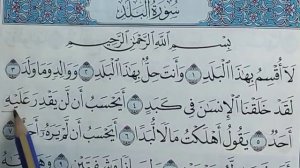 سُورَةُ الْبَلَدِ
بِسْمِ اللَّهِ الرَّحْمَٰنِ الرَّحِيمِ
لَا أُقْسِمُ بِهَٰذَا الْبَلَدِ ١ وَأَنتَ حِلٌّ بِهَٰذَا الْبَلَدِ ٢ وَوَالِدٍ وَمَا وَلَدَ ٣
لَقَدْ خَلَقْنَا الْإِنسَانَ فِي كَبَدٍ ٤ أَيَحْسَبُ أَن لَّن يَقْدِرَ عَلَيْهِ
أَحَدٌ ٥ يَقُولُ أَهْلَكْتُ مَالًا لُّبَدًا ٦ أَيَحْسَبُ أَن لَّمْ يَرَهُ أَحَدٌ ٧